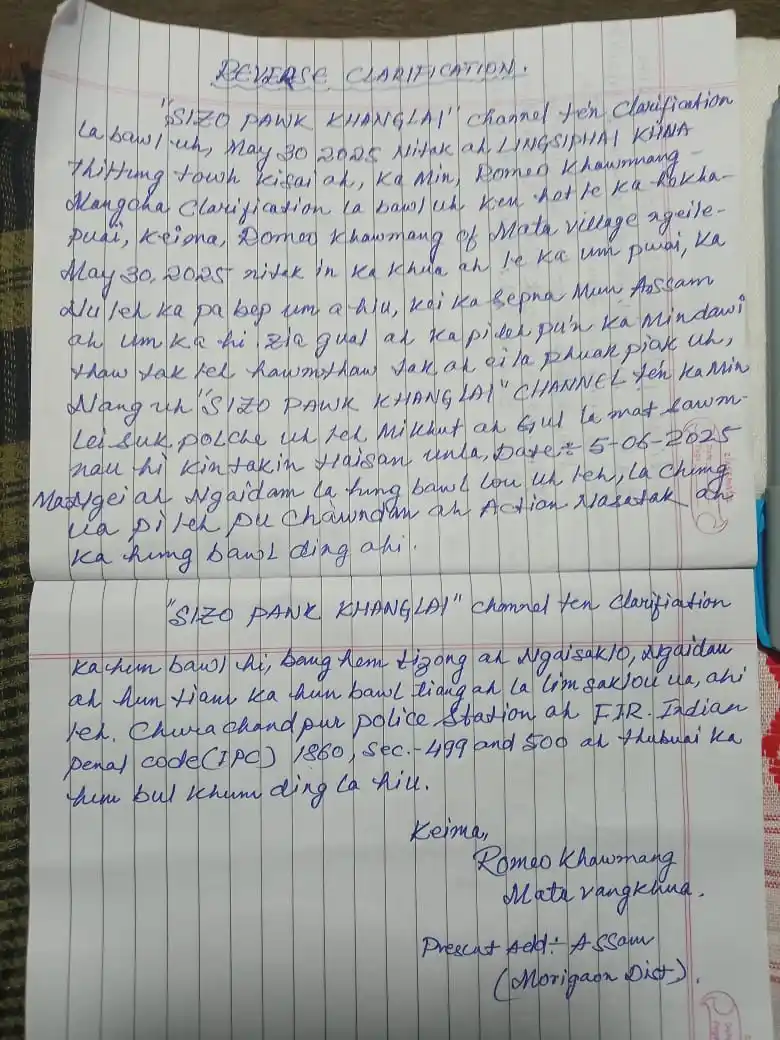 REVERSE CLARIFICATION.
"SIZO PAWK KHANGLAI" channel ten Clarification
la bawl uh, May 30 2025 Nitak ah LINGSIPHAI KIINA
thittung towh kisai ah, ka Min, Romeo Khawmang -
Mangcha Clarification la bawl uh ken hot le ka kokha-
puai, Keima, Romeo Khawmang of Mata village ngeile-
May 30, 2025 nitak in ka khua ah le ka um puai, ka
Nu leh ka pa bep um a hiu, kei ka sepna Mun Assam
ah um ka hi. Zia gual ah ka pidel pu'n ka Mindawi
thaw tak leh hawmthaw tak ah ei la phuak piak uh,
Nang uh "SIZO PAWK KHANGLAI" CHANNEL ten ka Min
lei suk polche uh leh Mikhut ah Gul la mat sawm-
nau hi kintakin Haisan unla, Date:- 5-06-2025
Ma Ngei ah Ngaidam la hung bawl lou uh leh, la chung
ua pi leh pu chawndan ah Action Nasatak ah
ka hung bawl ding ahi.
"SIZO PANK KHANGLAI" channel ten Clarifiation
ka hun bawl hi, bang hem tizong ah Ngaisaklo, Ngaidam
ah hun tiam ka hun bawl tiang ah la limsaklou ua, ahi
leh. Churachandpur police Station ah FIR. Indian
penal code (IPC) 1860, Sec.-499 and 500 ah thubuai ka
hun bul khum ding la hiu.
Keima,
Romeo Khawmang
Mata vangkhua.
Present Add:- Assam
(Morigaon Dist).